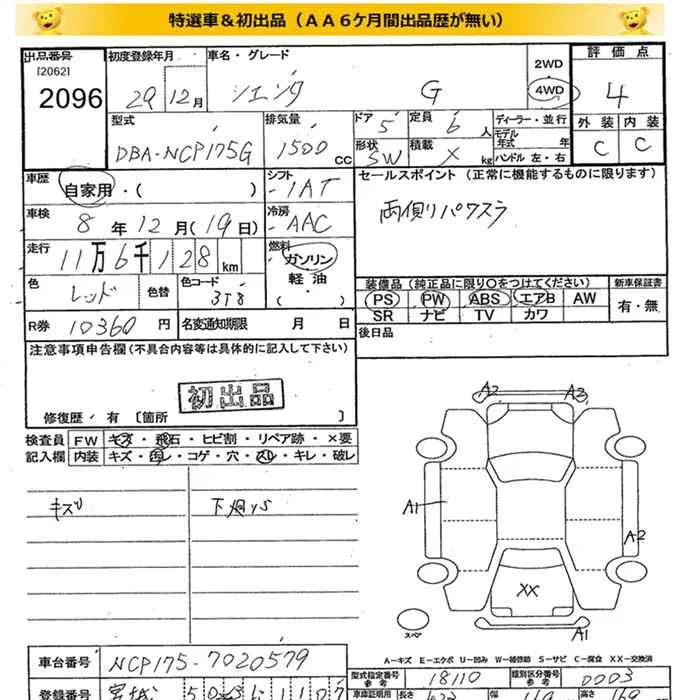 特選車＆初出品（ＡＡ６ケ月間出品歴が無い）
出品番号 初度登録年月 車名・グレード 2WD 評価点
[2062] 2096 29 12月 シエンタ G 4WD 4
型式 排気量 ドア 定員 ディーラー・並行 外装 内装
DBA-NCP175G 1500 CC 5 6 人 モデル年式 年 C C
形状 SW 積載 X kg ハンドル 左・右
車歴 自家用・( ) シフト -IAT セールスポイント（正常に機能するものに限ります）
車検 8年12月(19日) 冷房 -AAC 両側りパワスラ
走行 11万6千128km 燃料 ガソリン
色 レッド 色替 色コード 3T8 軽油 ( )
装備品（純正品に限り○をつけてください） 新車保証書
PS PW ABS エアB AW 有・無
SR ナビ TV カワ
R券 10360円 名変通知期限 月 日 後日品
注意事項申告欄(不具合内容等は具体的に記入して下さい)
初出品
修復歴・有 [箇所 ]
検査員 FW キズ・飛石・ヒビ割・リペア跡・×要
記入欄 内装 キズ・汚レ・コゲ・穴・スレ・キレ・破レ
キズ 下廻りS
A2 A3
A1 A2
XX
スペア A1
A－キズ E－エクボ U－凹み W－補修跡 S－サビ C－腐食 XX－交換済
車台番号 NCP175-7020579 型式指定番号 参考 18110 類別区分番号 参考 0003
登録番号 宮城 車庫証明用 長さ 高さ